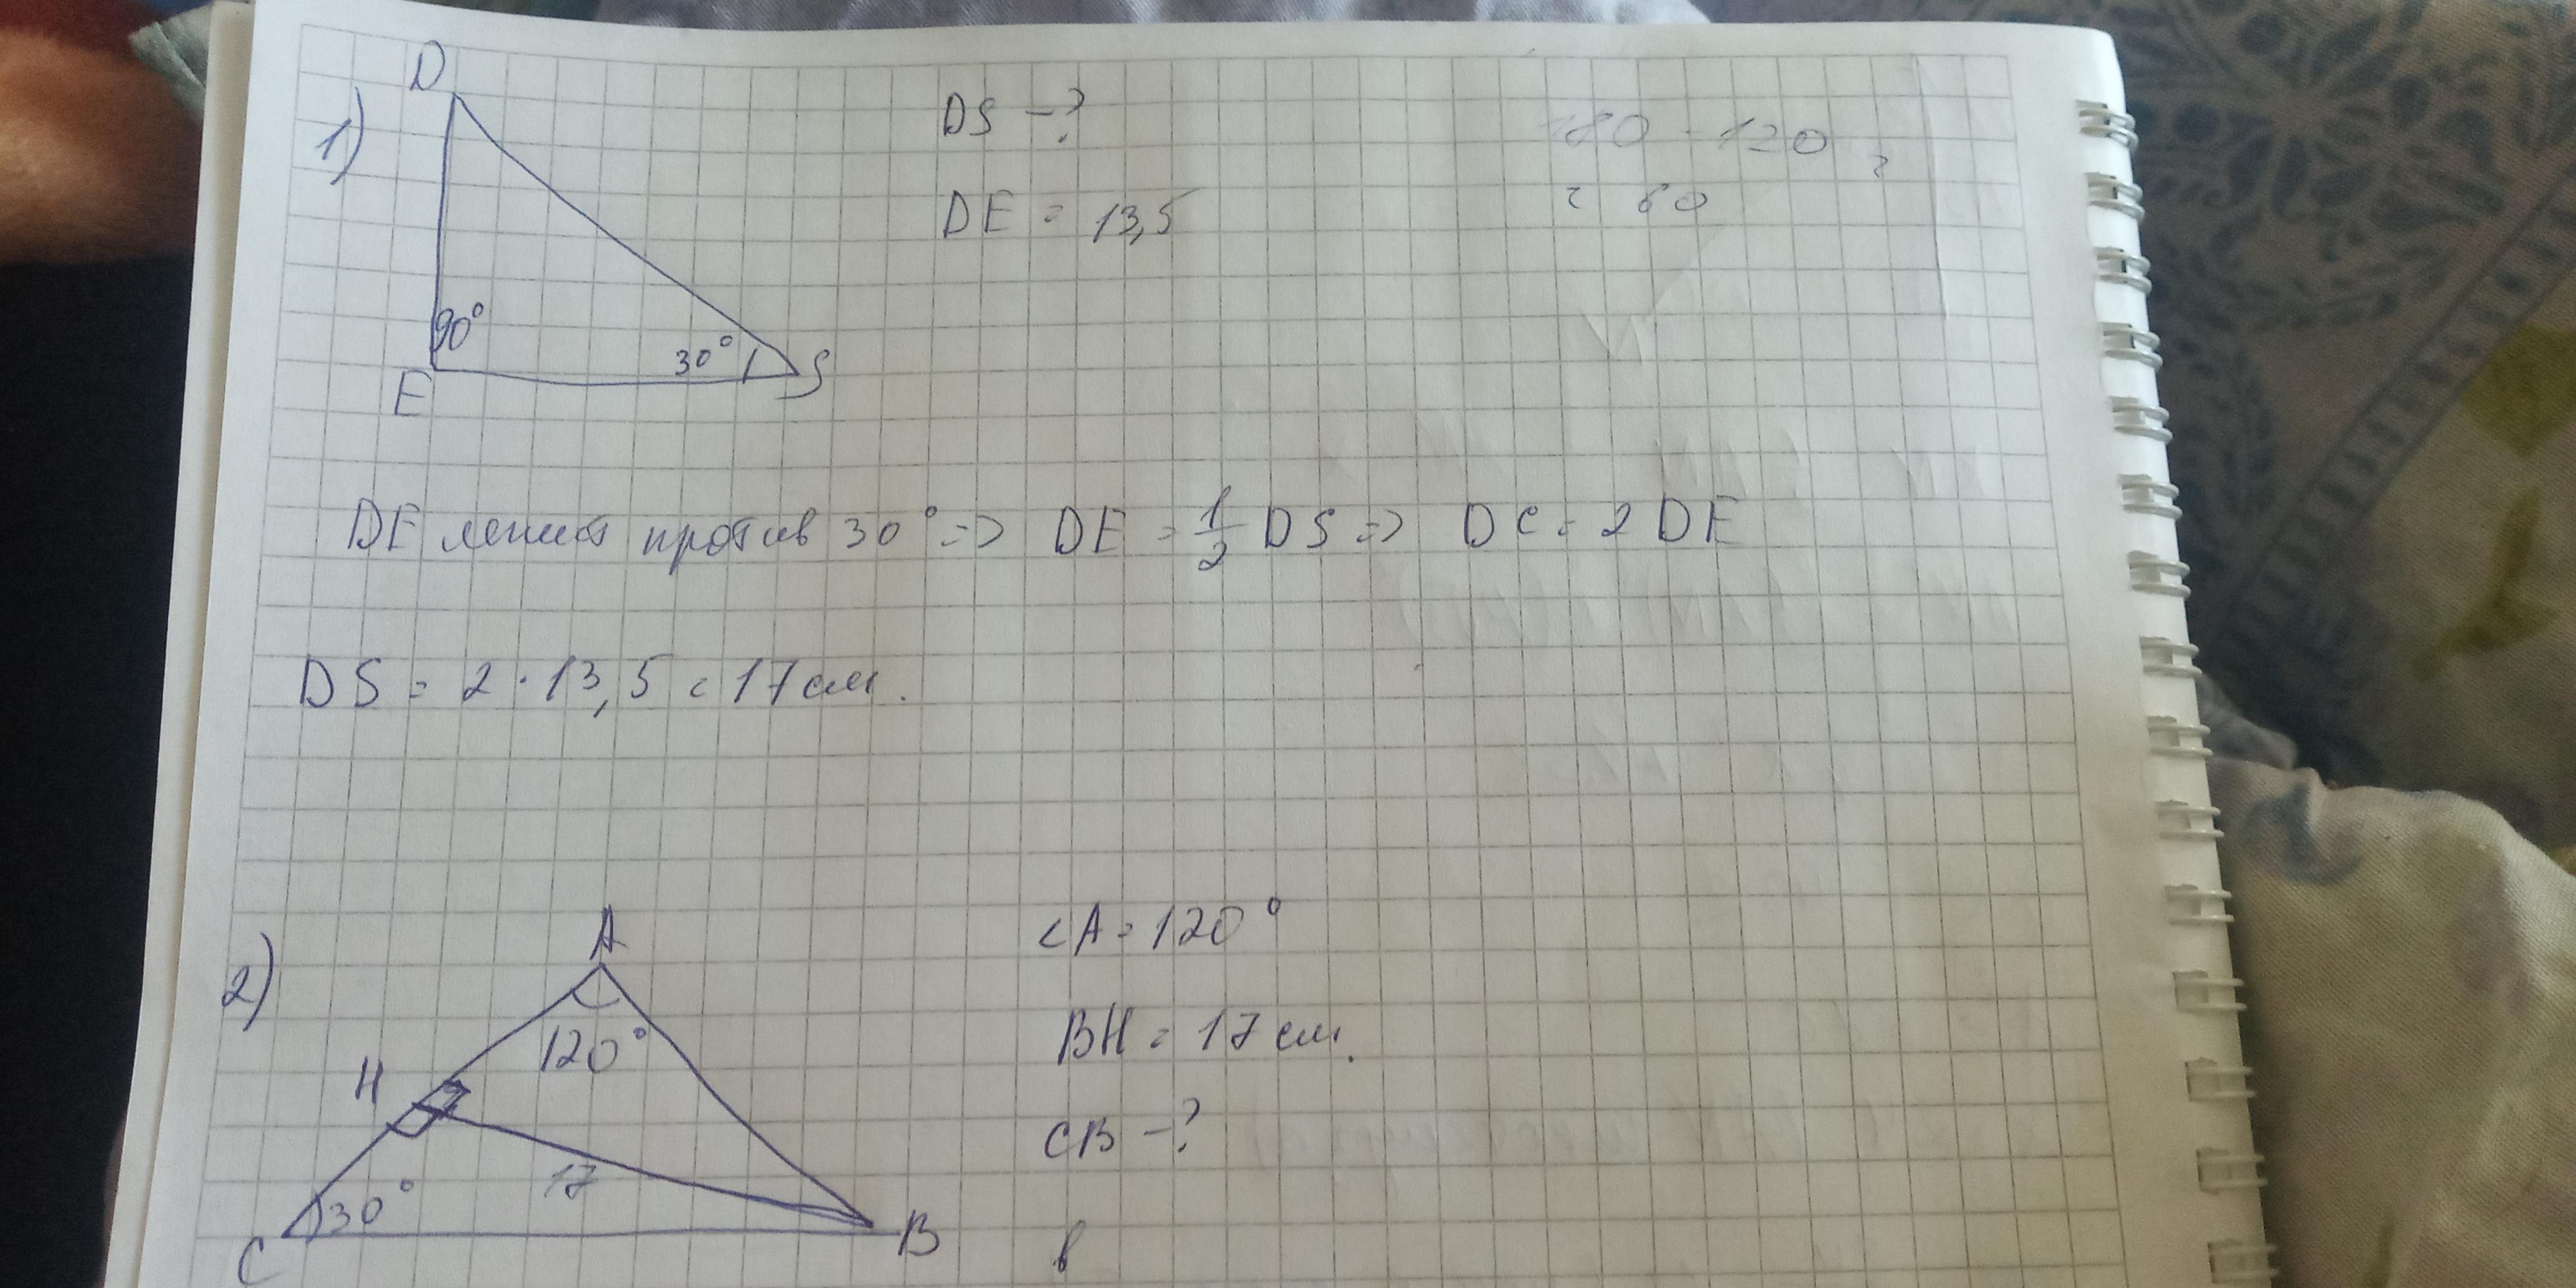 1)
D
90°
E
30°
S
DS - ?
DE = 13,5
180 - 120 =
= 60
DE лежит против 30° => DE = 1/2 DS => DC = 2 DE
DS = 2 · 13,5 = 17 см.
2)
A
120°
H
17
30°
C
B
<A = 120°
BH = 17 см.
CB - ?